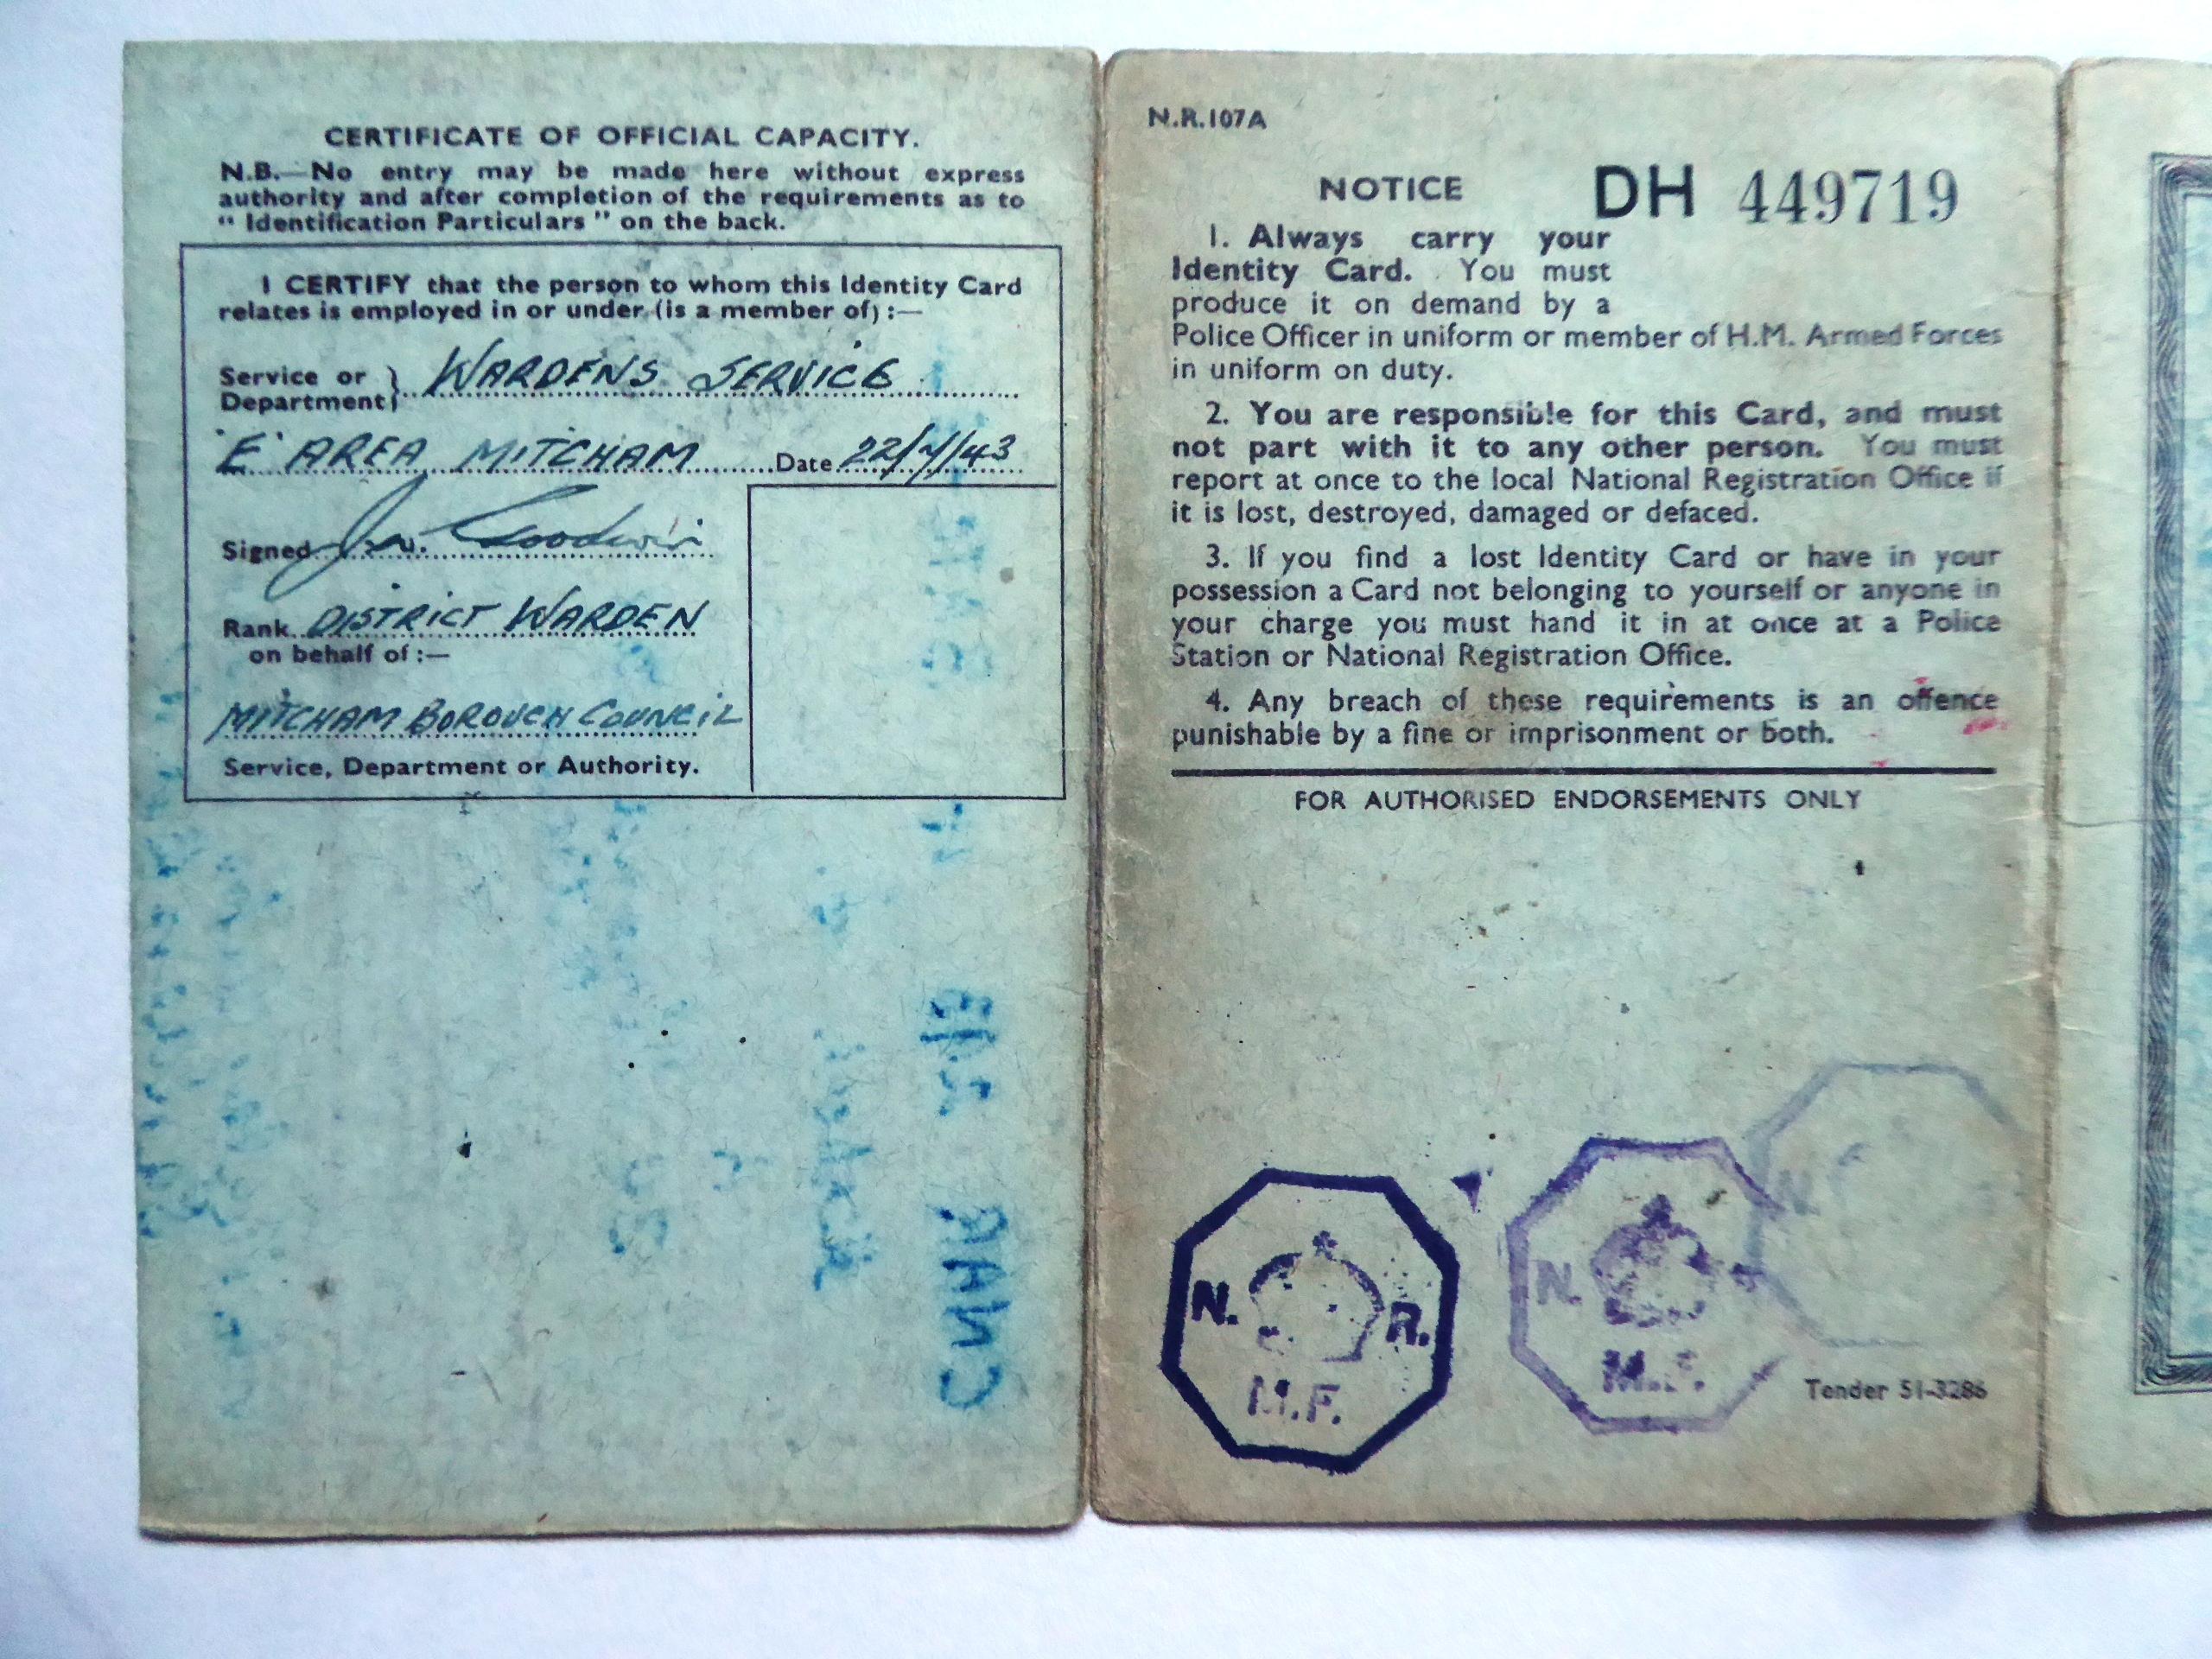 CERTIFICATE OF OFFICIAL CAPACITY.
N.B.—No entry may be made here without express
authority and after completion of the requirements as to
“ Identification Particulars ” on the back.
I CERTIFY that the person to whom this Identity Card
relates is employed in or under (is a member of) :—
Service or Department } WARDENS SERVICE
'E' AREA MITCHAM Date 22/7/43
Signed J. W. Goodwin
Rank DISTRICT WARDEN
on behalf of :—
MITCHAM BOROUGH COUNCIL
Service, Department or Authority.
N.R.107A
NOTICE DH 449719
1. Always carry your
Identity Card. You must
produce it on demand by a
Police Officer in uniform or member of H.M. Armed Forces
in uniform on duty.
2. You are responsible for this Card, and must
not part with it to any other person. You must
report at once to the local National Registration Office if
it is lost, destroyed, damaged or defaced.
3. If you find a lost Identity Card or have in your
possession a Card not belonging to yourself or anyone in
your charge you must hand it in at once at a Police
Station or National Registration Office.
4. Any breach of these requirements is an offence
punishable by a fine or imprisonment or both.
FOR AUTHORISED ENDORSEMENTS ONLY
N. R.
M.F.
N.
M.F.
N.
Tender 51-3286